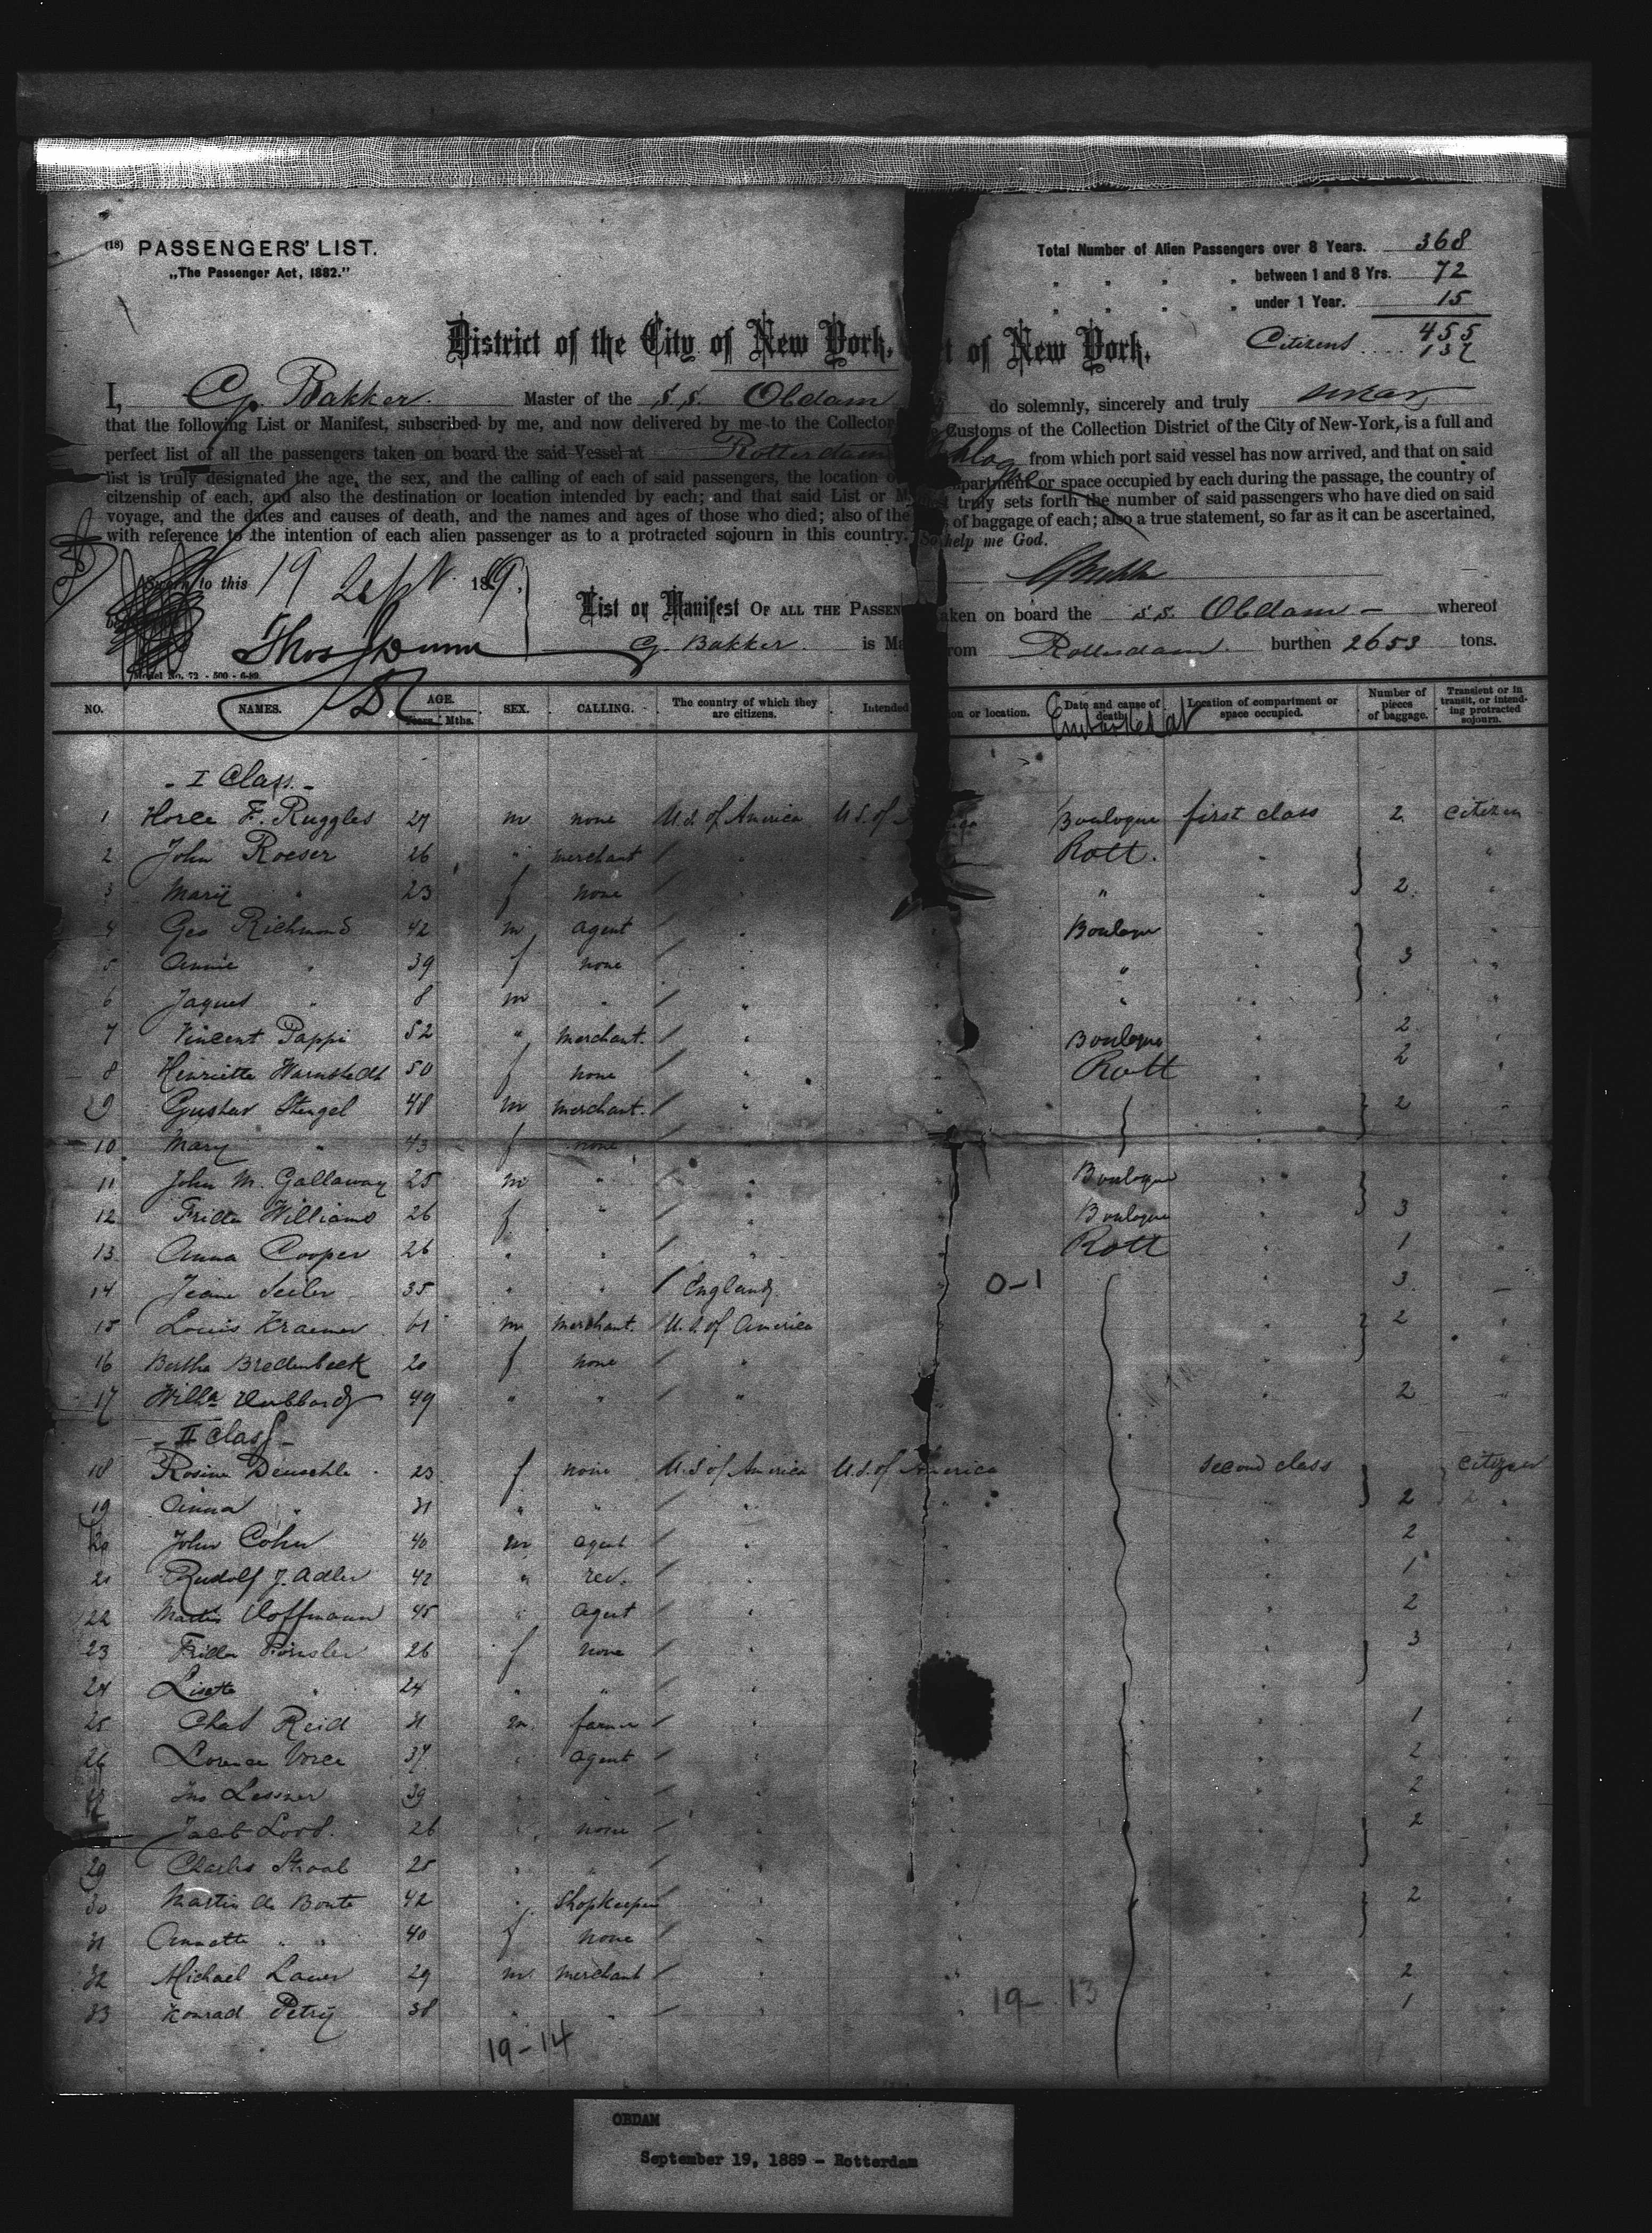 (18) PASSENGERS' LIST.
„The Passenger Act, 1882."
Total Number of Alien Passengers over 8 Years. 368
" " " " between 1 and 8 Yrs. 72
" " " " under 1 Year. 15
455
Citizens .... 137
District of the City of New York, t of New York.
I, G. Bakker. Master of the s.s. Obdam do solemnly, sincerely and truly swear
that the following List or Manifest, subscribed by me, and now delivered by me to the Collector Customs of the Collection District of the City of New-York, is a full and
perfect list of all the passengers taken on board the said Vessel at Rotterdam from which port said vessel has now arrived, and that on said
list is truly designated the age, the sex, and the calling of each of said passengers, the location o partment or space occupied by each during the passage, the country of
citzenship of each, and also the destination or location intended by each; and that said List or M truly sets forth the number of said passengers who have died on said
voyage, and the dates and causes of death, and the names and ages of those who died; also of the of baggage of each; also a true statement, so far as it can be ascertained,
with reference to the intention of each alien passenger as to a protracted sojourn in this country. So help me God.
Sworn to this 19 Sept. 1889.
G Bakker
List or Manifest OF ALL THE PASSEN taken on board the s.s. Obdam — whereof
Thos J Dunn
G. Bakker. is Ma rom Rotterdam burthen 2653 tons.
Model No. 72 - 500 - 6-89
NO. NAMES. AGE. Years. Mths. SEX. CALLING. The country of which they are citizens. Intended on or location. Date and cause of death. Embarked at Location of compartment or space occupied. Number of pieces of baggage. Transient or in transit, or intending protracted sojourn.
- I Class. -
1 Horce F. Ruggles 27 m none U.S. of America U.S. of Boulogne first class 2 citizen
2 John Roeser 26 " merchant / " Rott. " "
3 Mary " 23 f none / " " " 2 "
4 Geo Richmond 42 m agent / " Boulogne " "
5 Annie " 39 f none / " " " 3 "
6 Jaques " 8 m " / " " " "
7 Vincent Pappi 52 " merchant. / " Boulogne " 2 "
8 Henriette Warnstedt 50 f none / " Rott " 2 "
9 Gustav Stengel 48 m merchant. / " " 2 "
10 Mary " 43 f none / " " "
11 John M. Gallaway 25 m " / " Boulogne " "
12 Frida Williams 26 f " / " Boulogne " 3 "
13 Anna Cooper 26 " " / " Rott " 1 "
14 Jeane Seiler 35 " " / England O-1 " 3 —
15 Louis Kraemer 61 m merchant. U.S. of America " 2 "
16 Bertha Bredenbeek 20 f none / " " "
17 Willa Hubbard 49 " " / " " 2 "
- II Class -
18 Rosine Deuschle 23 f none U.S. of America U.S. of America second class citizen
19 Anna " 31 " " / " " " 2 "
20 John Cohn 40 m agent / " " " 2 "
21 Rudolf J. Adler 42 " rev. / " " " 1 "
22 Hoffmann 45 " agent / " " " 2 "
23 Frida 26 f none / " " " 3 "
24 Lisette " 24 " " / " " " "
25 Chas Reid 31 m. farmer / " " " 1 "
26 37 " agent / " " " 2 "
Lessner 39 " " / " " " 2 "
Jacob 26 " none / " " " 2 "
29 Charles 25 " " / " " " "
30 Martin de Bonte 42 " shopkeeper / " " " 2 "
31 Annette " " 40 f none / " " " "
32 Michael Lauer 29 m merchant / " " " 2 "
33 Konrad Petry 38 " " / " " 19-13 " 1 "
19-14
OBDAM
September 19, 1889 - Rotterdam